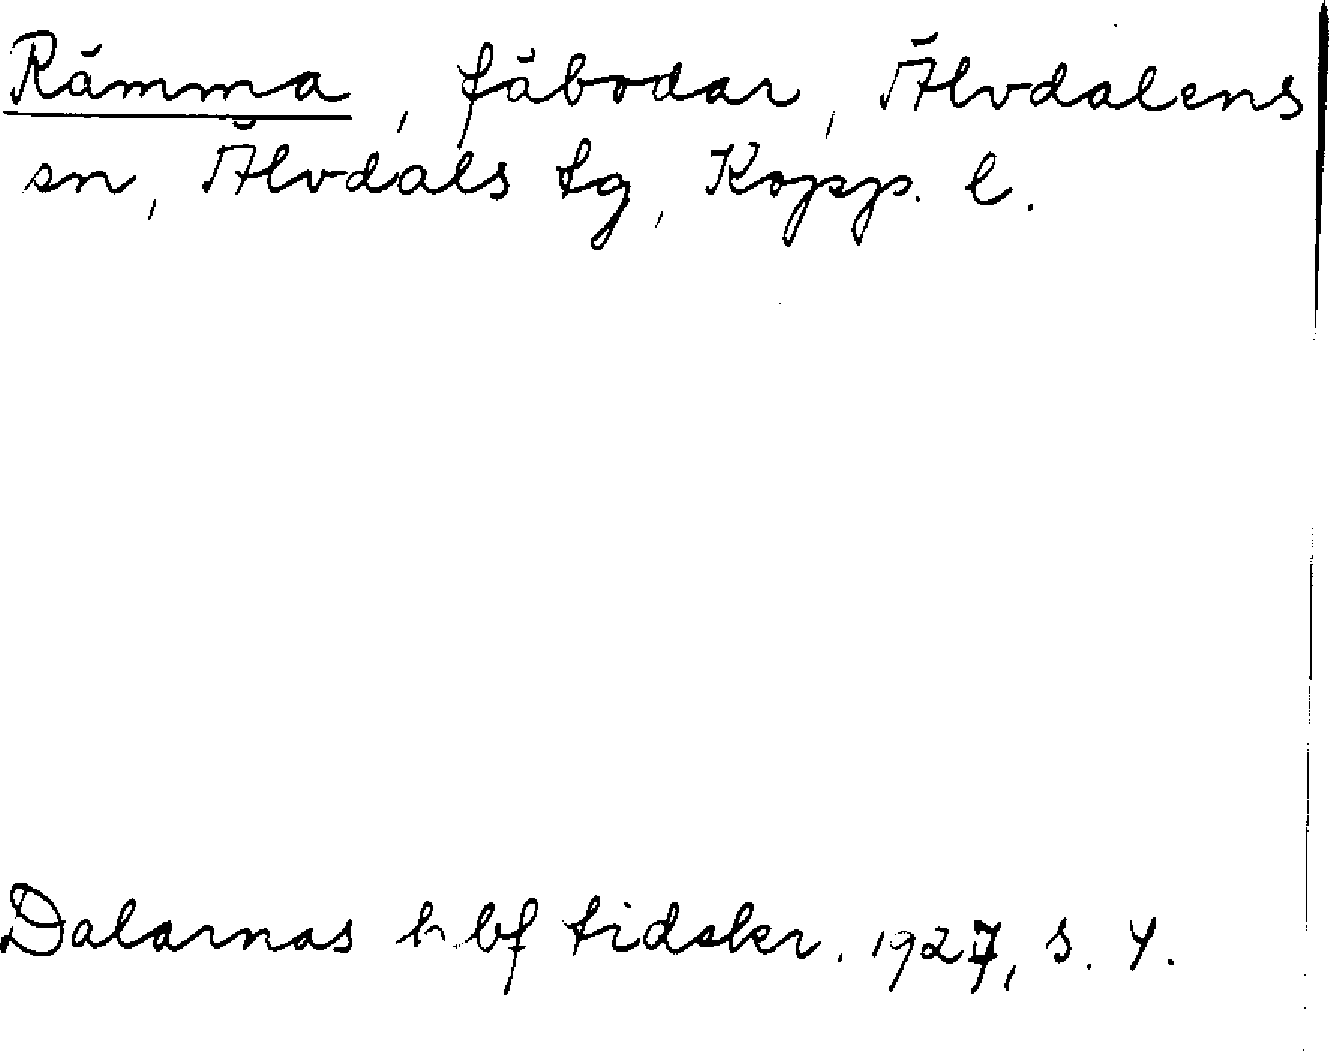 Rämma, fäbodar, Älvdalens
sn, Älvdals tg, Kopp. l.
Dalarnas hbf tidskr. 1927, s. 4.